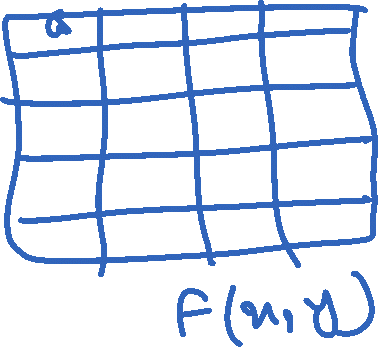 a
F(x,y)